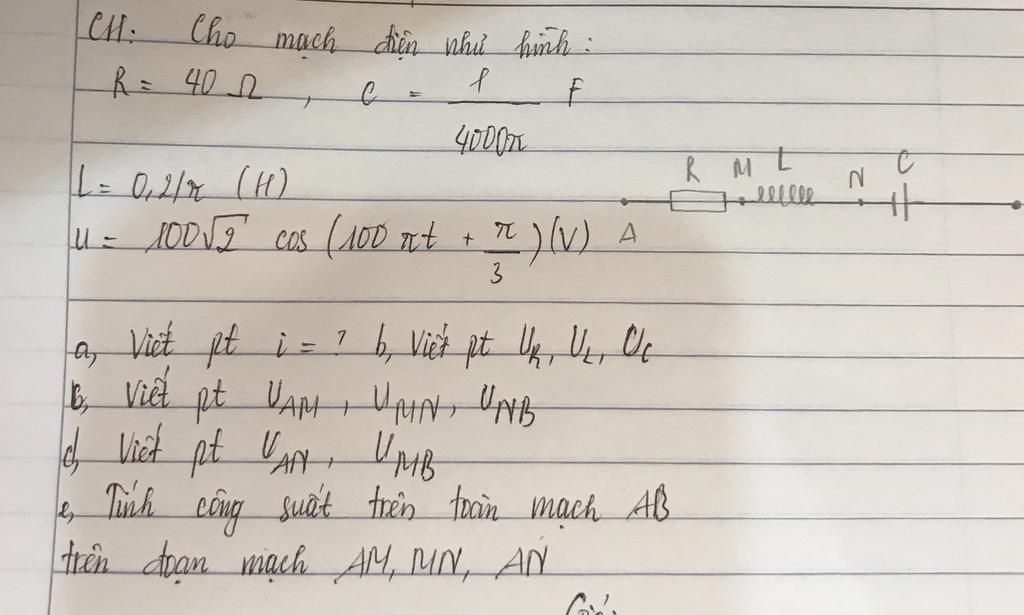 CH: Cho mạch điện như hình:
R = 40 Ω , C = 1/4000π F
L = 0,2/π (H)
R M L N C
u = 100√2 cos (100πt + π/3)(V) A
a, Viết pt i = ? b, Viết pt UR, UL, UC
b, Viết pt UAM, UMN, UNB
d, Viết pt UAN, UMB
e, Tính công suất trên toàn mạch AB
trên đoạn mạch AM, MN, AN